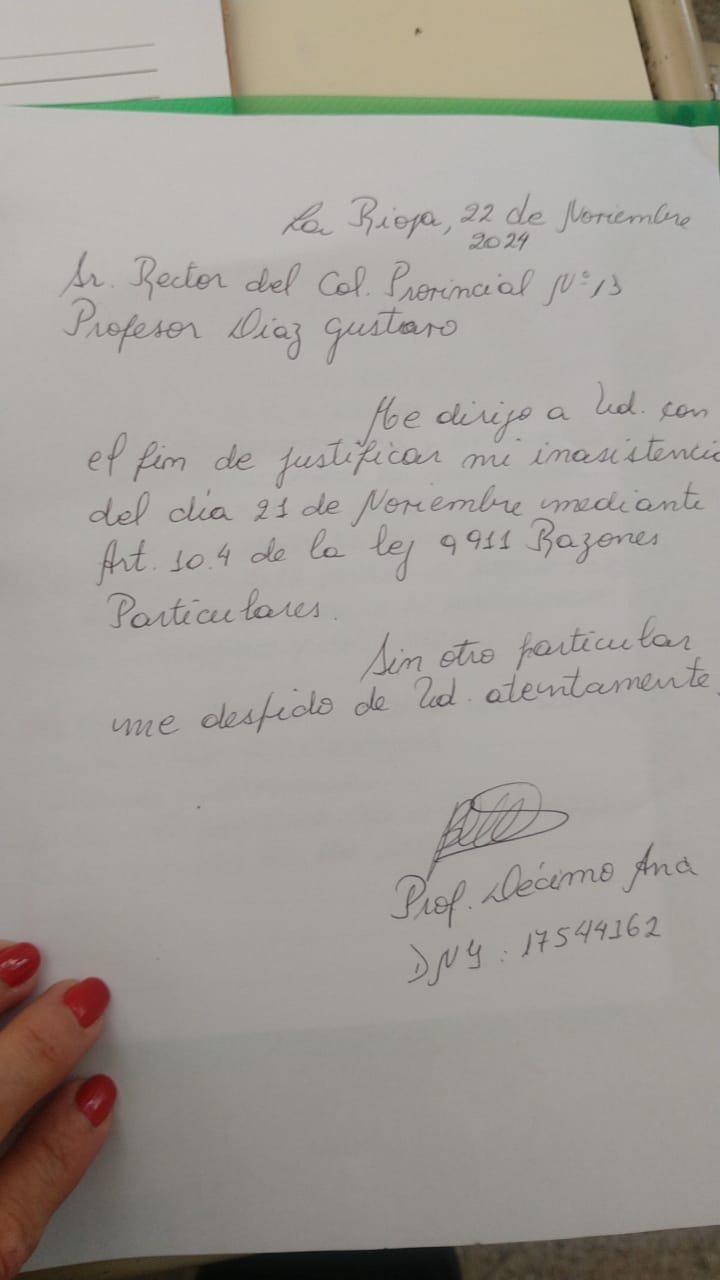 La Rioja, 22 de Noviembre
2024
Sr. Rector del Col. Provincial N° 13
Profesor Diaz Gustavo
Me dirijo a Ud. con
el fin de justificar mi inasistencia
del día 21 de Noviembre mediante
Art. 10.4 de la ley 9911 Razones
Particulares.
Sin otro particular
me despido de Ud. atentamente.
Prof. Décimo Ana
DNI : 17544162